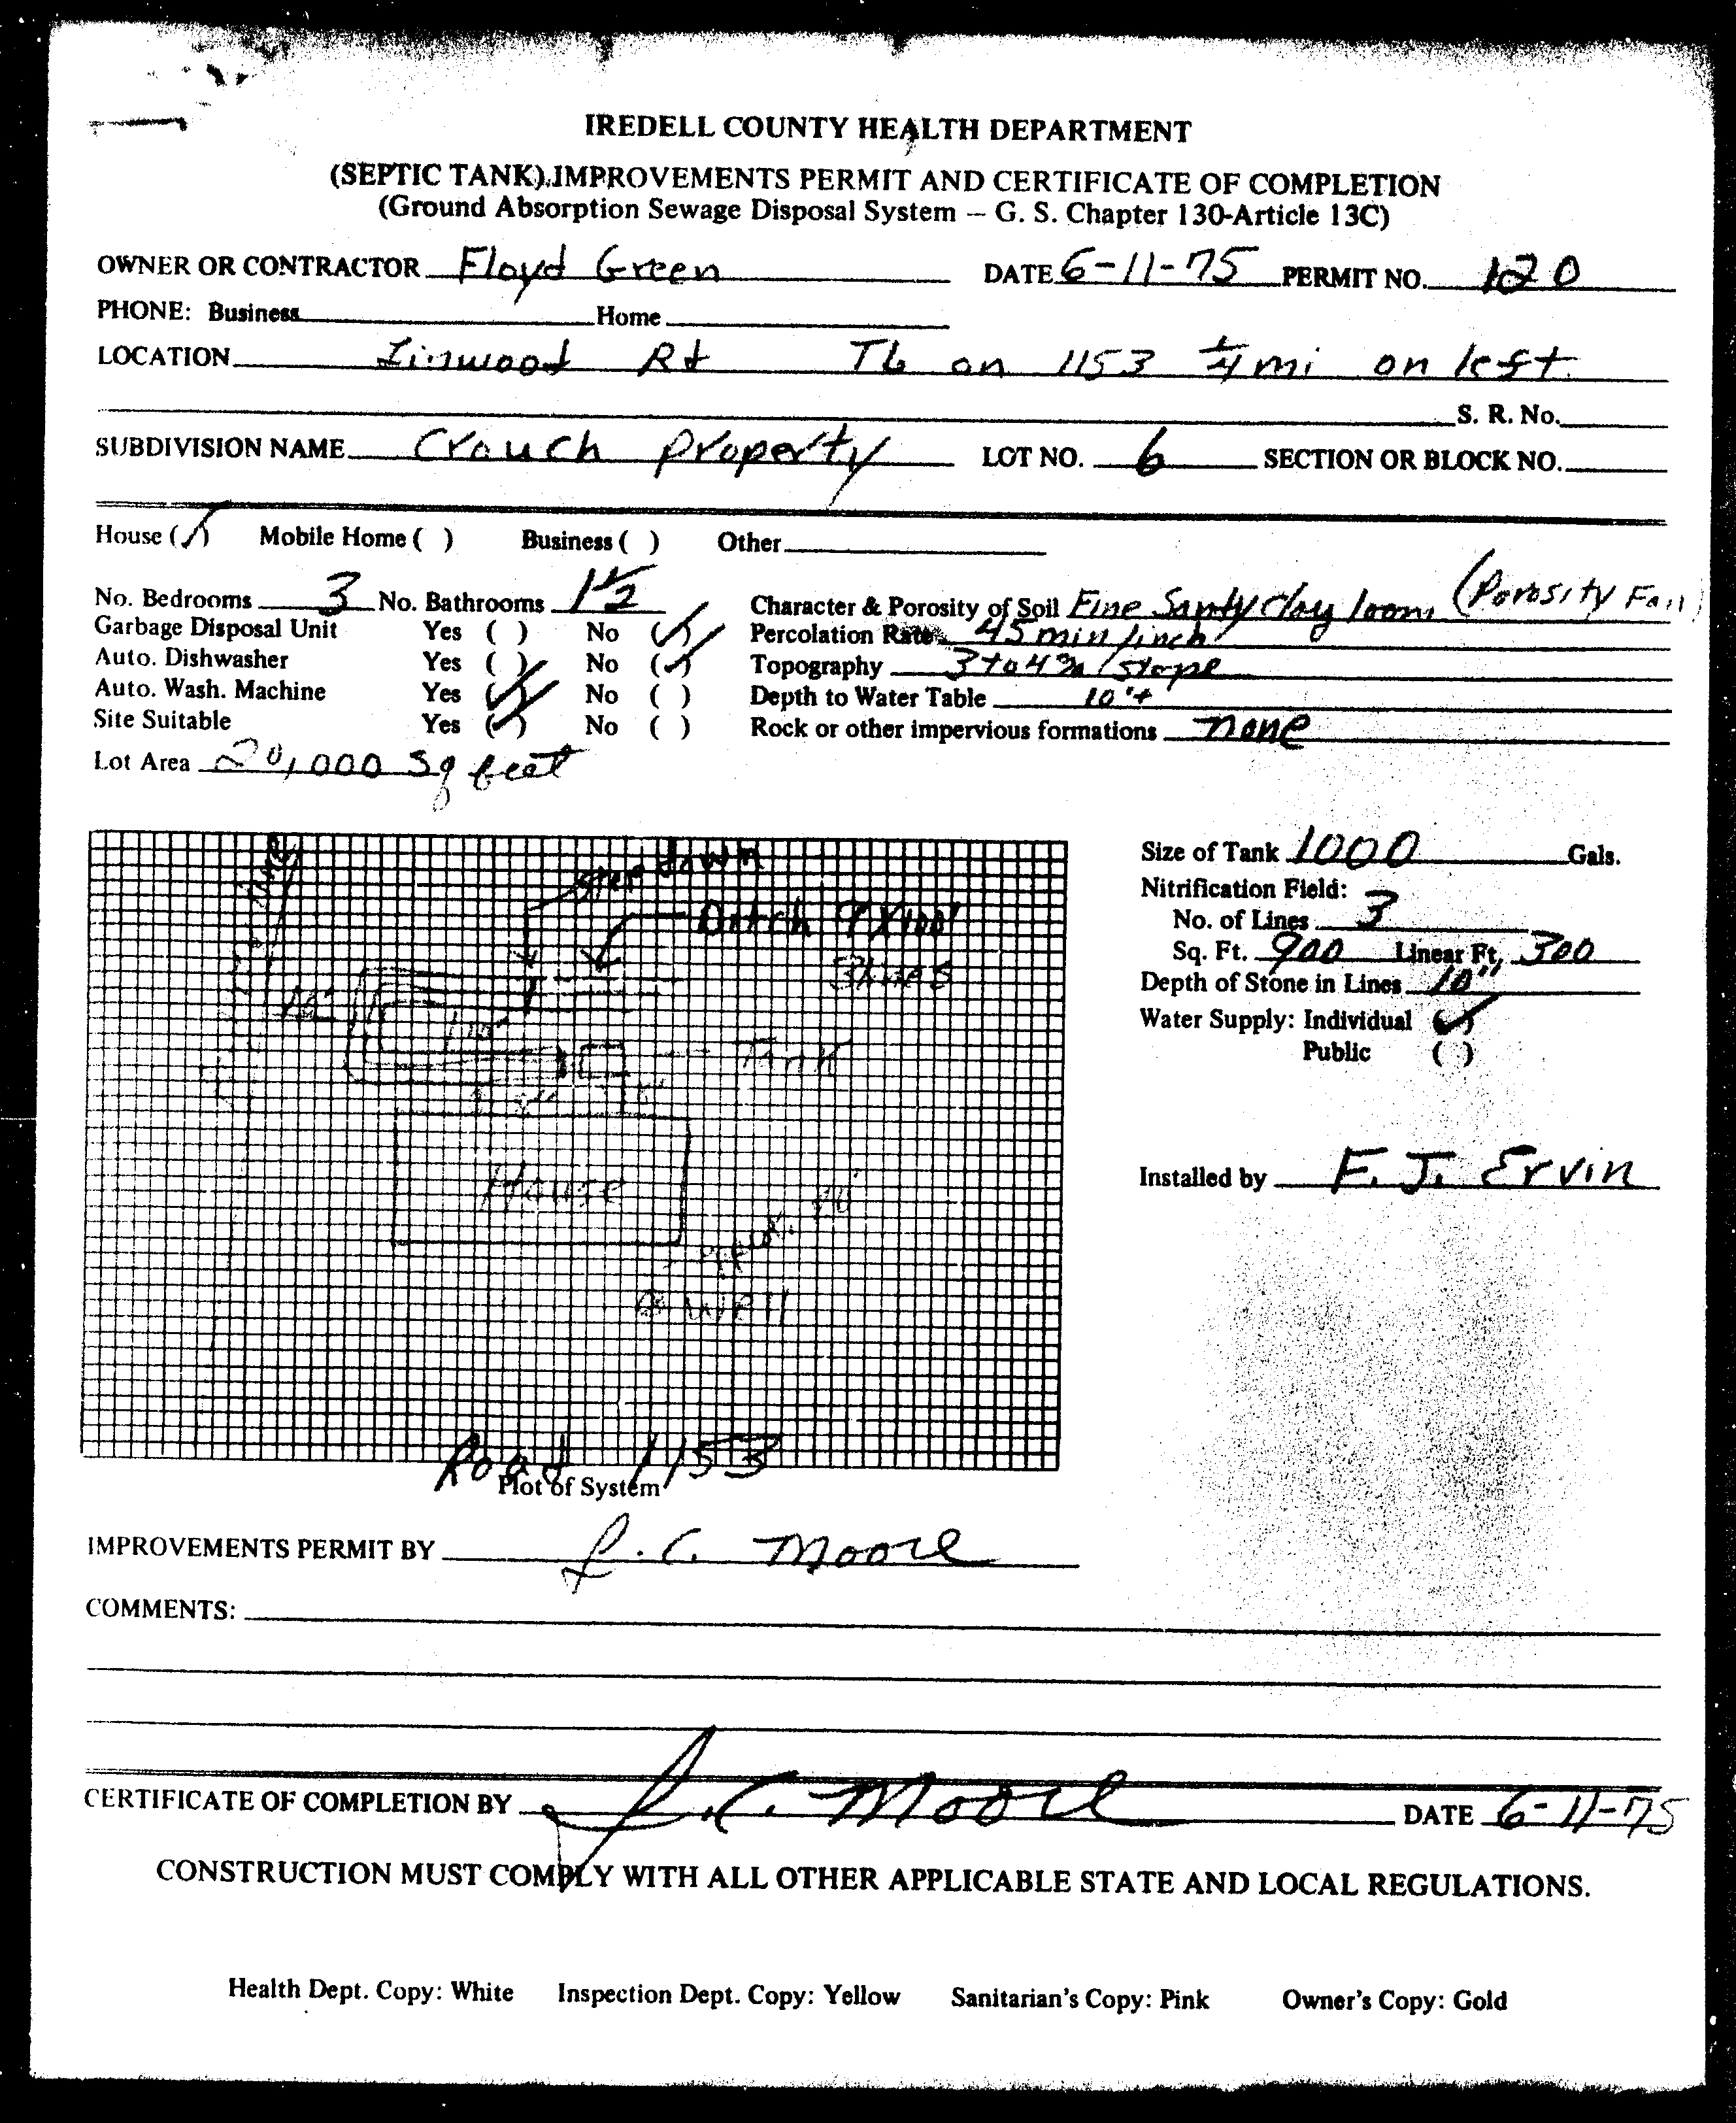 IREDELL COUNTY HEALTH DEPARTMENT
(SEPTIC TANK) IMPROVEMENTS PERMIT AND CERTIFICATE OF COMPLETION
(Ground Absorption Sewage Disposal System – G. S. Chapter 130-Article 13C)
OWNER OR CONTRACTOR Floyd Green DATE 6-11-75 PERMIT NO. 120
PHONE: Business Home
LOCATION Linwood Rd TL on 1153 1/4 mi on left
S. R. No.
SUBDIVISION NAME Crouch property LOT NO. 6 SECTION OR BLOCK NO.
House (✓) Mobile Home ( ) Business ( ) Other
No. Bedrooms 3 No. Bathrooms 1 1/2 Character & Porosity of Soil Fine Sandy Clay loam (Porosity Fair)
Garbage Disposal Unit Yes ( ) No (✓) Percolation Rate 45 min/inch
Auto. Dishwasher Yes ( ) No (✓) Topography 3 to 4% slope
Auto. Wash. Machine Yes (✓) No ( ) Depth to Water Table 10'+
Site Suitable Yes (✓) No ( ) Rock or other impervious formations none
Lot Area 20,000 sq feet
step down
Ditch X100'
3 lines
Tank
House
Well
Road 1153
Plot of System
Size of Tank 1000 Gals.
Nitrification Field:
No. of Lines 3
Sq. Ft. 900 Linear Ft. 300
Depth of Stone in Lines 10"
Water Supply: Individual (✓)
Public ( )
Installed by F. J. Ervin
IMPROVEMENTS PERMIT BY L. C. Moore
COMMENTS:
CERTIFICATE OF COMPLETION BY L. C. Moore DATE 6-11-75
CONSTRUCTION MUST COMPLY WITH ALL OTHER APPLICABLE STATE AND LOCAL REGULATIONS.
Health Dept. Copy: White Inspection Dept. Copy: Yellow Sanitarian's Copy: Pink Owner's Copy: Gold